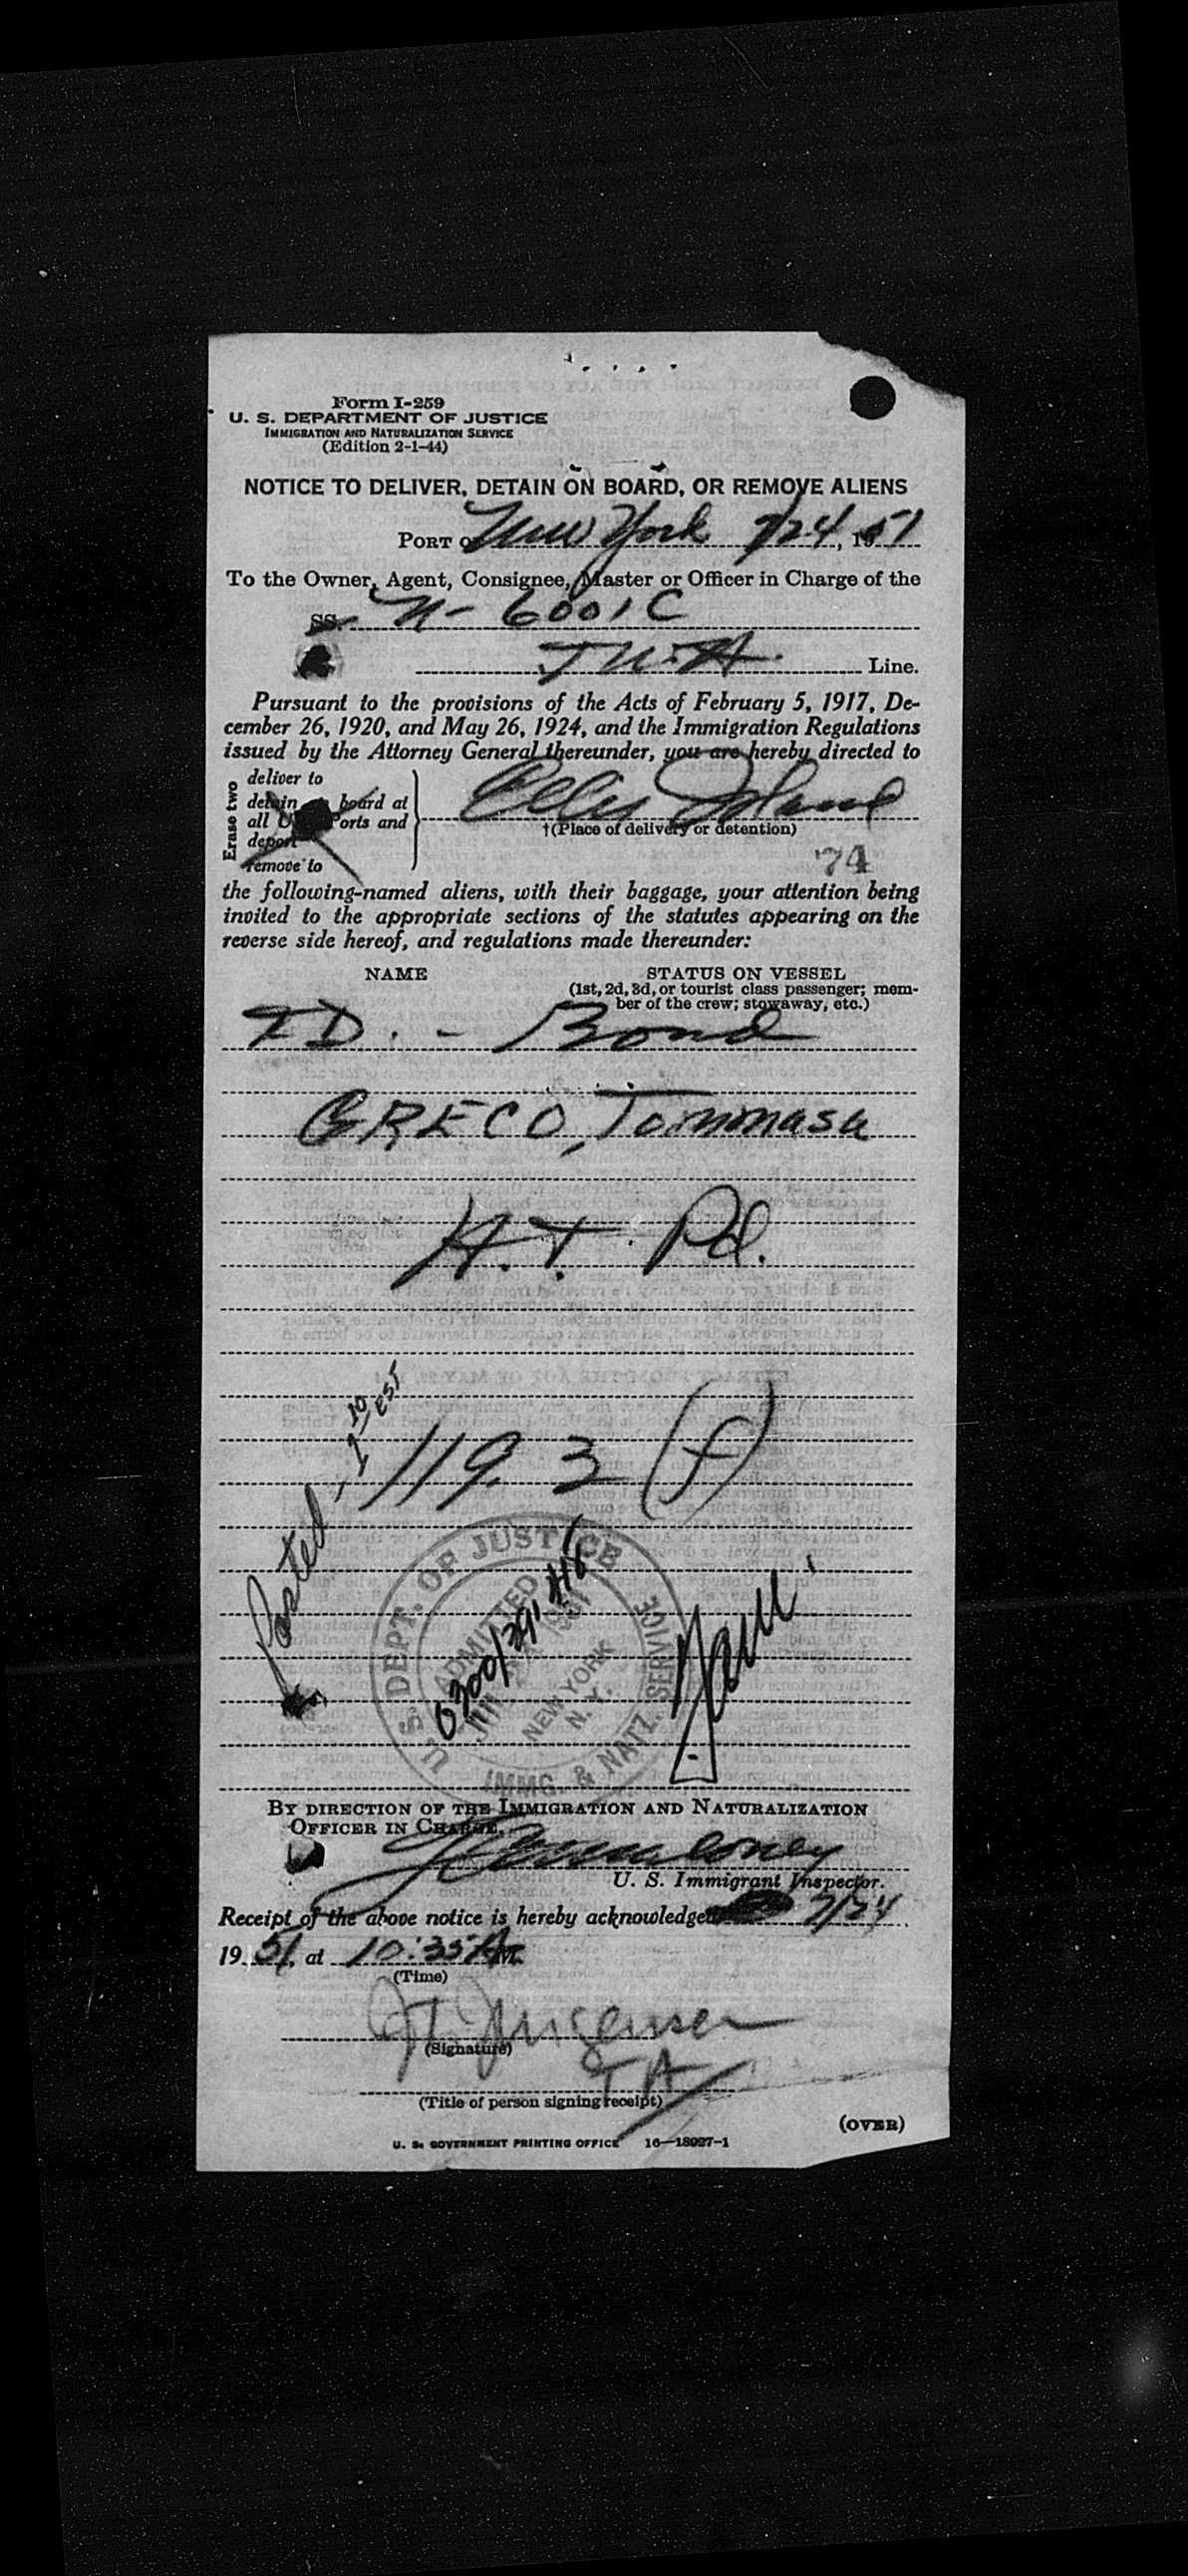 Form I-259
U. S. DEPARTMENT OF JUSTICE
IMMIGRATION AND NATURALIZATION SERVICE
(Edition 2-1-44)
NOTICE TO DELIVER, DETAIN ON BOARD, OR REMOVE ALIENS
PORT OF New York 7/24, 1951
To the Owner, Agent, Consignee, Master or Officer in Charge of the
SS. N-6001C
T.W.A. Line.
Pursuant to the provisions of the Acts of February 5, 1917, De-
cember 26, 1920, and May 26, 1924, and the Immigration Regulations
issued by the Attorney General thereunder, you are hereby directed to
Erase two
deliver to
detain on board at
all U. S. ports and
deport
remove to
Ellis Island
†(Place of delivery or detention)
74
the following-named aliens, with their baggage, your attention being
invited to the appropriate sections of the statutes appearing on the
reverse side hereof, and regulations made thereunder:
NAME STATUS ON VESSEL
(1st, 2d, 3d, or tourist class passenger; mem-
ber of the crew; stowaway, etc.)
TD. - Bond
GRECO, Tommasa
H.T. Pd.
Posted
1193 (f)
U. S. DEPT. OF JUSTICE
ADMITTED
1951
NEW YORK
N. Y.
IMMG. & NATZ. SERVICE
0300/391
BY DIRECTION OF THE IMMIGRATION AND NATURALIZATION
OFFICER IN CHARGE.
U. S. Immigrant Inspector.
Receipt of the above notice is hereby acknowledged 7/24
1951, at 10:35 A M.
(Time)
J Jurgensen
(Signature)
TA
(Title of person signing receipt)
(OVER)
U. S. GOVERNMENT PRINTING OFFICE 16—18927-1